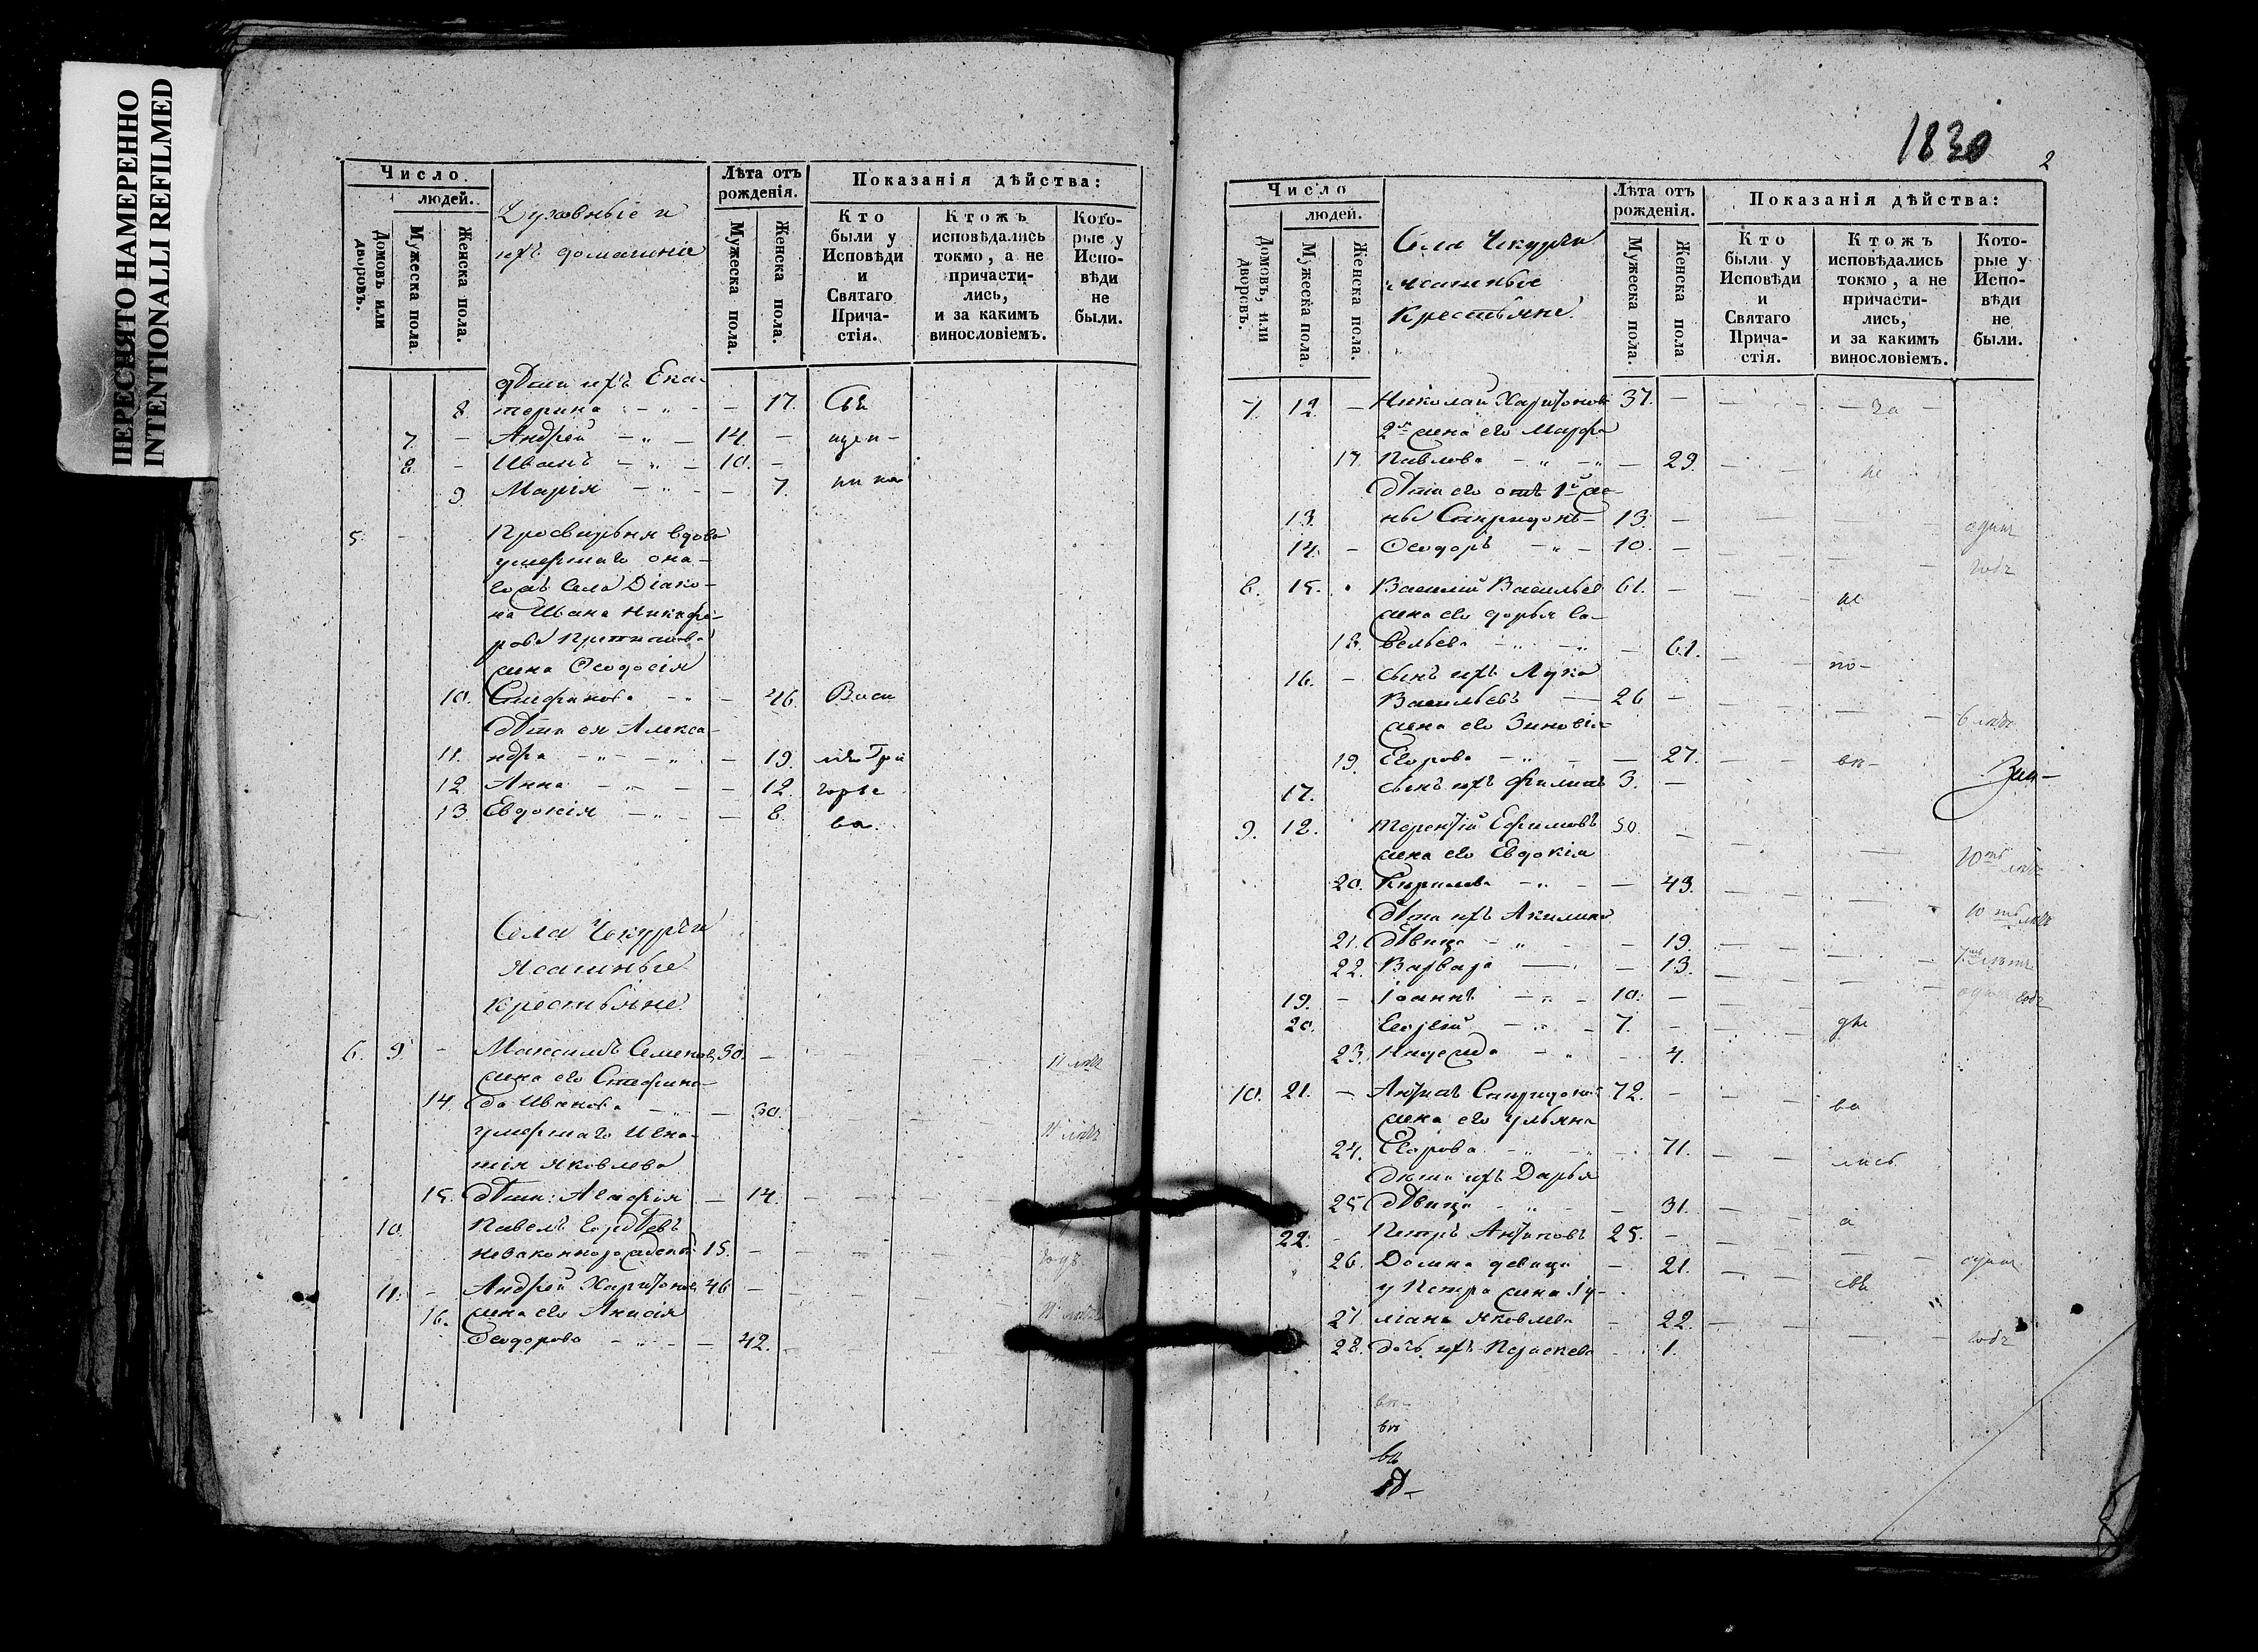 ПЕРЕСНЯТО НАМЕРЕННО
INTENTIONALLI REFILMED
Число.
людей.
Домовъ или дворовъ.
Мужеска пола.
Женска пола.
Духовныіе и
ихъ домашніе
Лѣта отъ рожденія.
Мужеска пола.
Женска пола.
Показанія дѣйства:
Кто были у Исповѣди и Святаго Прича-стія.
Ктожъ исповѣдались токмо, а не причасти-лись, и за какимъ винословіемъ.
Кото-рые у Испо-вѣди не были.
дѣти ихъ Ека-
8. терина — „ — — 17. Свя
7. — Андрей — „ — 14. — щен-
8. — Иванъ — „ — 10. —
9 Марія — „ — — 7.
5. — Просвирня вдова
умершаго она-
го жъ Села Діако-
на Ивана Никифо-
рова
жена Ѳеодосія
10. Стефанова — „ — 46. Васи
дѣти ея Алекса-
11. ндра — „ — „ — 19. лія Гри
12 Анна — „ — — 12. горье
13. Евдокія — „ — — 8. ва.
Села Чекурги
Ясашные
крестьяне
6. 9. — Максимъ Семеновъ 30. — 11 лѣтъ
жена его Стефани-
14. да Иванова — „ — 30.
умершаго Игна- 11 лѣтъ
тія Яковлева
15. дѣти: Агафія — 14. —
10. Павелъ Гордѣевъ
незаконнорожденной 15. — годъ
11. — Андрей Харитоновъ 46 —
16. жена его Анисія 11 лѣтъ
Ѳеодорова — „ — — 42.
1830
2
Число
людей.
Домовъ, или дворовъ.
Мужеска пола.
Женска пола.
Села Чекурги
ясашные
крестьяне
Лѣта отъ рожденія.
Мужеска пола.
Женска пола
Показанія дѣйства:
Кто были у Исповѣди и Святаго Прича-стія.
Ктожъ исповѣдались токмо, а не причасти-лись, и за какимъ винословіемъ.
Кото-рые у Испо-вѣди не были.
7. 12. — Николай Харитоновъ 37. — — За —
2я жена его Марфа
17. Павлова — „ — „ — 29. — не
дѣти его отъ 1й же-
13. ны Спиридонъ — 13. — один
14. — Ѳеодоръ — „ — 10. — годъ
8. 15. Василій Васильевъ 61. — не
жена его Дарья Са-
18. вельева — „ — „ — 61. — по-
16. — сынъ ихъ Лука
Васильевъ — 26 — 6 лѣтъ
жена его Зиновія
19. Егорова — „ — — 27. — вп-
17. сынъ ихъ Филипъ 3. —
9. 18. Терентій Ефимовъ 50. —
жена его Евдокія 10ть лѣтъ
20. Кирилова — „ — — 49.
дѣти ихъ Акилина 10 ть лѣтъ
21. дѣвица — „ — — 19. —
22. Варвара — — 13. — 7мь лѣтъ
19. — Іоаннъ — „ — 10. — годъ
20. Георгій — „ — 7. —
23. Надежда — „ — 4.
10. 21. — Антипъ Спиридоновъ 72. — во
жена его Ульяна
24. Егорова — „ — 71. — лись
дѣти ихъ Дарья
25 дѣвица — „ — 31. —
22. — Петръ Антиповъ 25. — а
26. Домна девица — 21. один
у Петра жена Iу-
27 ліана Яковлева — 22. —
28. дочь ихъ Параскева — 1. годъ
вп